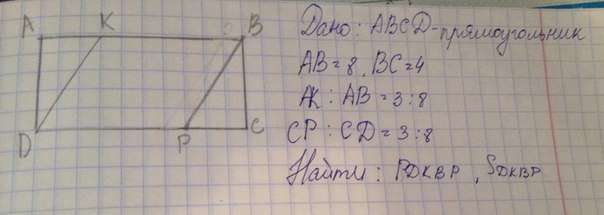 A K B
D P C
Дано: ABCD-прямоугольник
AB=8, BC=4
AK : AB = 3:8
CP : CD = 3:8
Найти: PDKBP, SDKBP